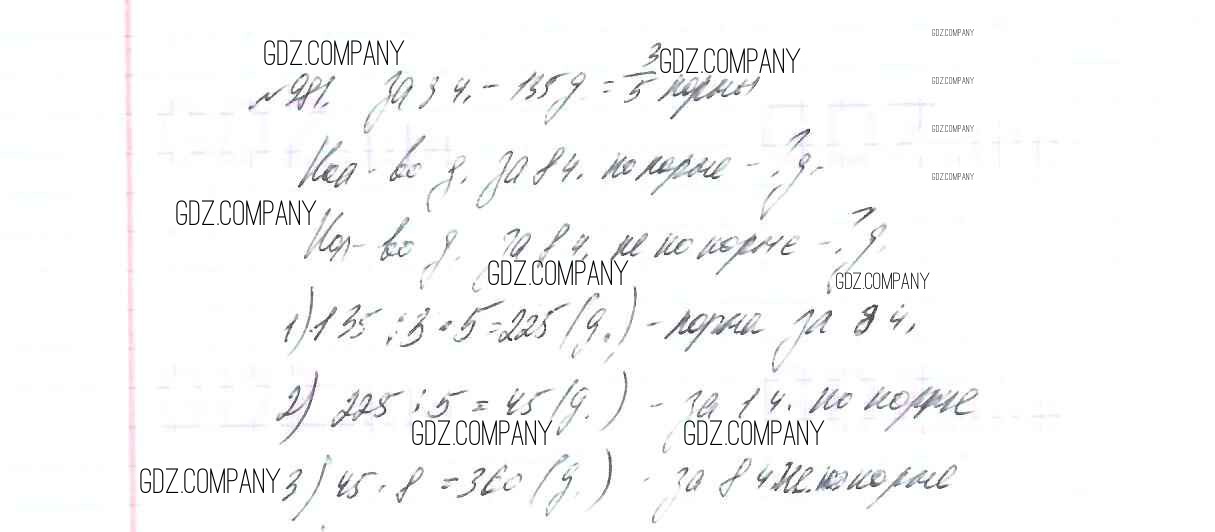 GDZ.COMPANY
GDZ.COMPANY
GDZ.COMPANY
№981. За 3 ч. - 135 д. = 3/5 нормы
GDZ.COMPANY
GDZ.COMPANY
Кол-во д. за 8 ч. по норме - ? д.
GDZ.COMPANY
GDZ.COMPANY
Кол-во д. за 8 ч. не по норме - ? д.
GDZ.COMPANY
GDZ.COMPANY
1) 135 : 3 · 5 = 225 (д.) - норма за 8 ч.
2) 225 : 5 = 45 (д.) - за 1 ч. по норме
GDZ.COMPANY
GDZ.COMPANY
GDZ.COMPANY
3) 45 · 8 = 360 (д.) - за 8 ч не по норме